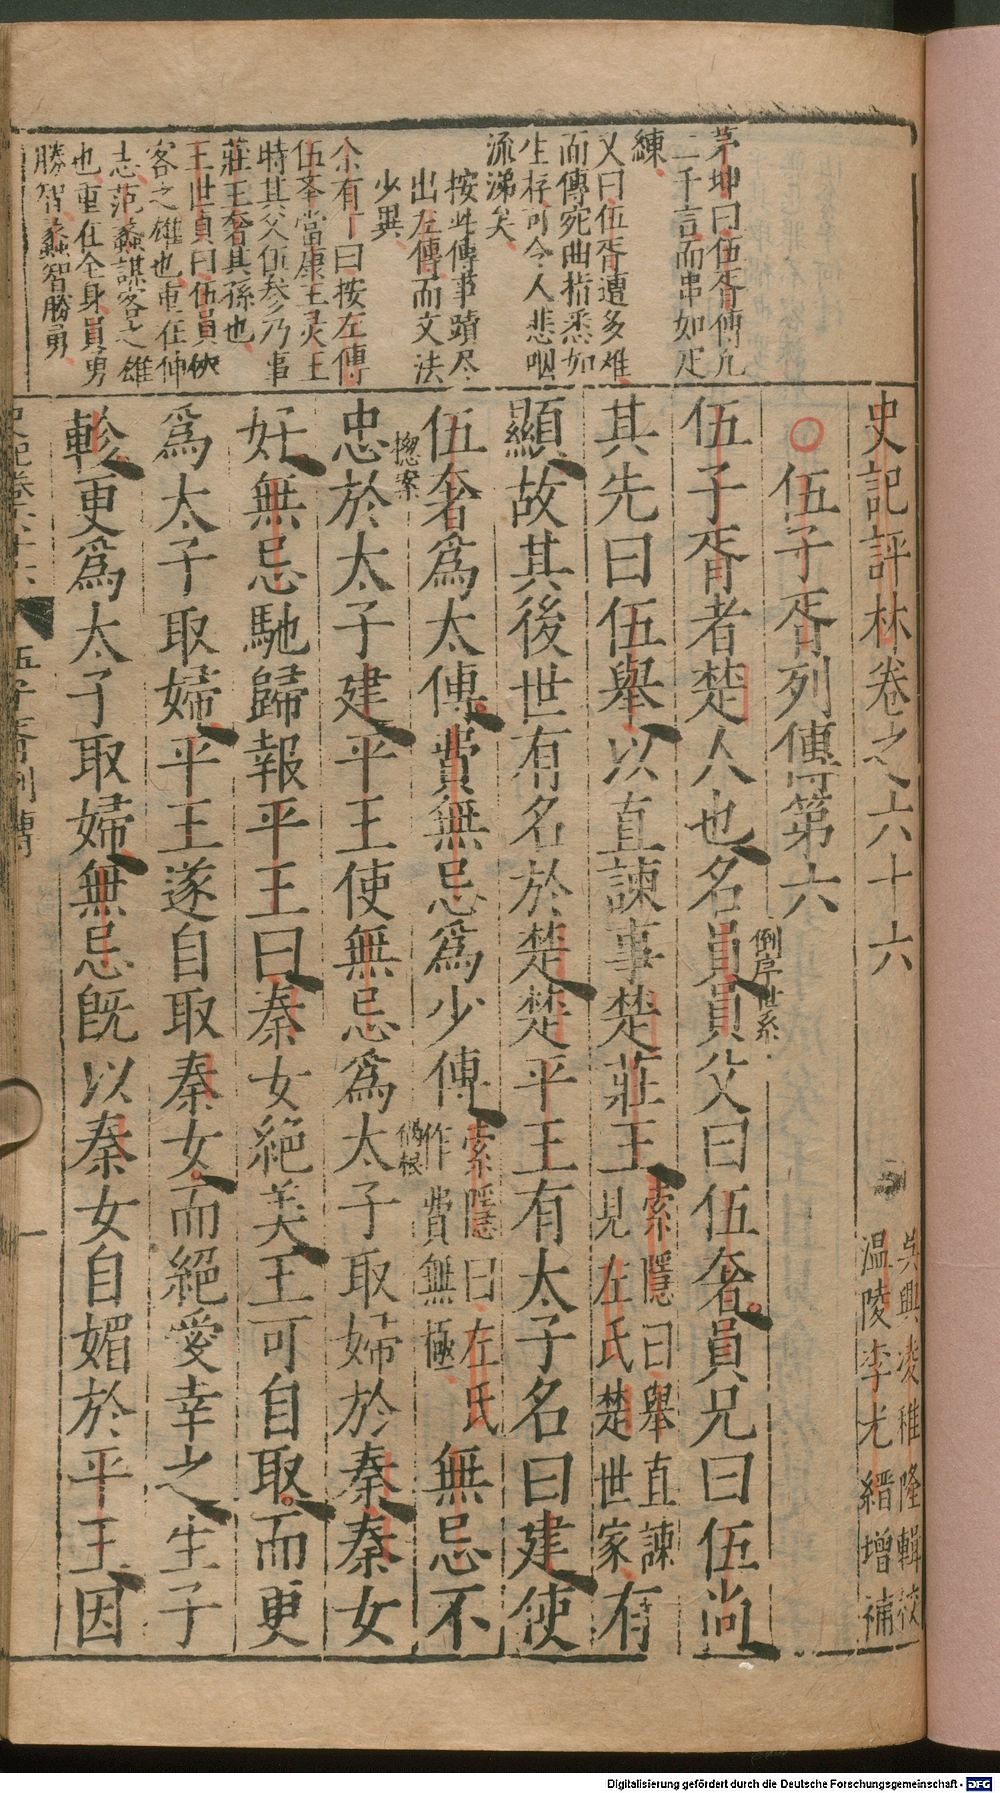 茅坤曰伍胥傳凡
二千言而串如疋
練
又曰伍胥遭多難
而傳宛曲指悉如
生存可令人悲咽
流涕矣
按此傳事蹟尽
出左傳而文法
少異
余有丁曰按左傳
伍奢當康王灵王
時其父伍参乃事
莊王奢其孫也
王世貞曰伍員俠
客之雄也重在伸
志范蠡謀客之雄
也重在全身員勇
勝智蠡智勝勇
史記評林卷之六十六
吳興凌稚隆輯校
温陵李光縉增補
伍子胥列傳第六
伍子胥者楚人也名員員父曰伍奢員兄曰伍尚
倒序世系
其先曰伍舉以直諫事楚莊王索隱曰舉直諫見左氏楚世家有
顯故其後世有名於楚楚平王有太子名曰建使
伍奢爲太傅費無忌爲少傅索隱曰左氏作費無極無忌不
摠案
忠於太子建平王使無忌爲太子取婦於秦秦女
禍根
好無忌馳歸報平王曰秦女絕美王可自取而更
爲太子取婦平王遂自取秦女而絕愛幸之生子
軫更爲太子取婦無忌既以秦女自媚於平王因
史記卷六十六 伍子胥列傳 一
Digitalisierung gefördert durch die Deutsche Forschungsgemeinschaft - DFG